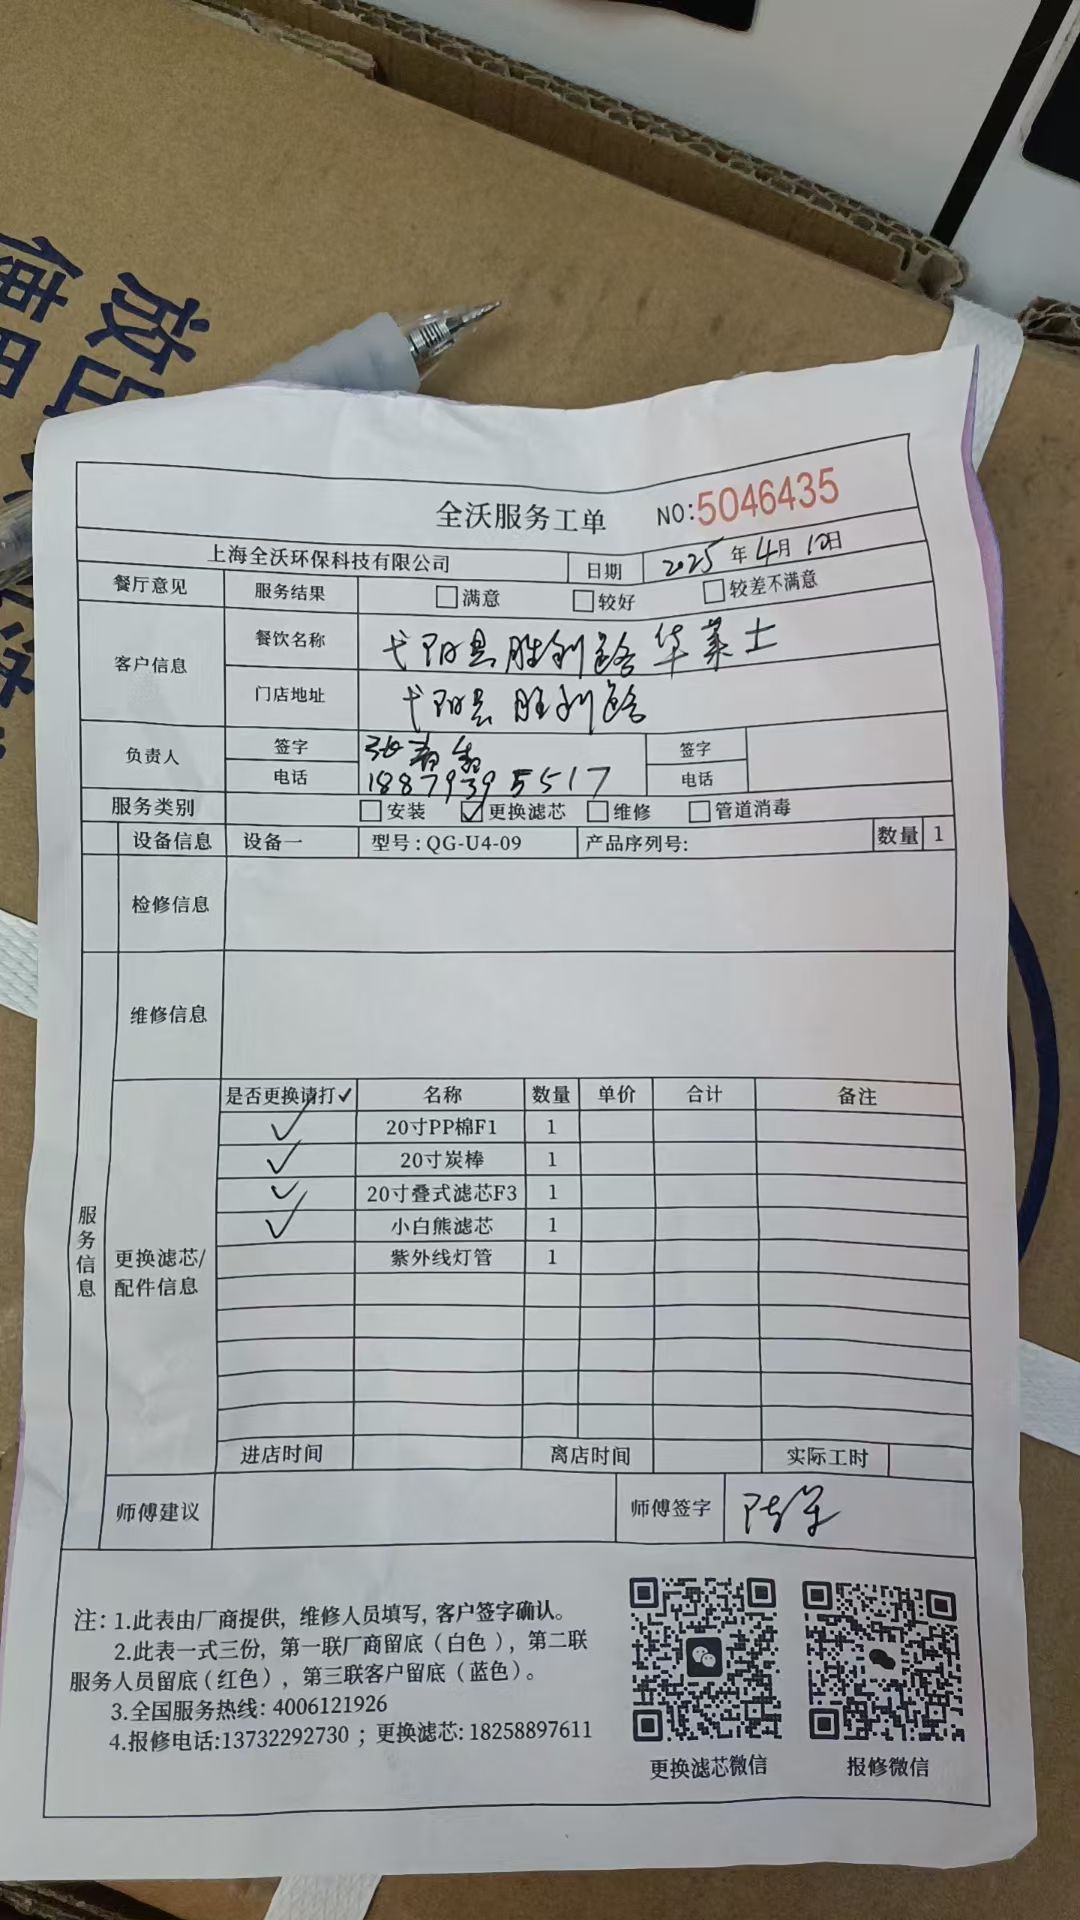 放出
使用
全沃服务工单 NO:5046435
上海全沃环保科技有限公司 日期 2025年4月10日
餐厅意见 服务结果 ☐满意 ☐较好 ☐较差不满意
客户信息 餐饮名称 弋阳县胜利路华莱士
门店地址 弋阳县胜利路
负责人 签字 签字
电话 18879395517 电话
服务类别 ☐安装 ☑更换滤芯 ☐维修 ☐管道消毒
设备信息 设备一 型号:QG-U4-09 产品序列号: 数量 1
检修信息
维修信息
服务信息
更换滤芯/配件信息
是否更换请打✓ 名称 数量 单价 合计 备注
✓ 20寸PP棉F1 1
✓ 20寸炭棒 1
✓ 20寸叠式滤芯F3 1
✓ 小白熊滤芯 1
紫外线灯管 1
进店时间 离店时间 实际工时
师傅建议 师傅签字
注:1.此表由厂商提供,维修人员填写,客户签字确认。
2.此表一式三份,第一联厂商留底(白色),第二联
服务人员留底(红色),第三联客户留底(蓝色)。
3.全国服务热线:4006121926
4.报修电话:13732292730;更换滤芯:18258897611
更换滤芯微信 报修微信